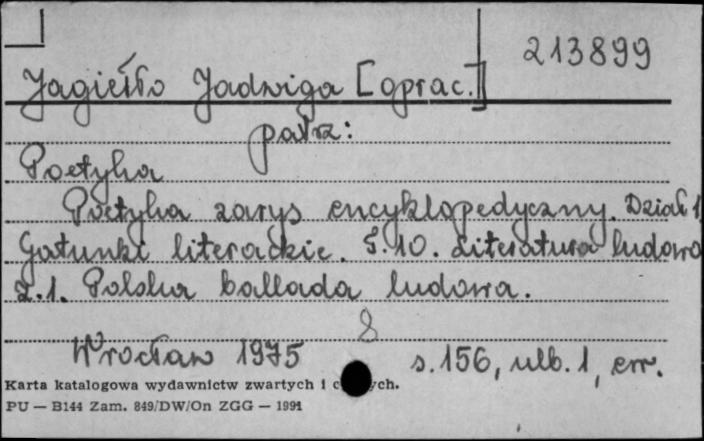 213899
Jagiełło Jadwiga [oprac.]
patrz:
Poetyka
Poetyka zarys encyklopedyczny. Dział 1
Gatunki literackie. T.10. Literatura ludowa
z.1. Polska ballada ludowa.
8
Wrocław 1975 s.156, ulb.1, err.
Karta katalogowa wydawnictw zwartych i c ych.
PU — B144 Zam. 849/DW/On ZGG — 1991